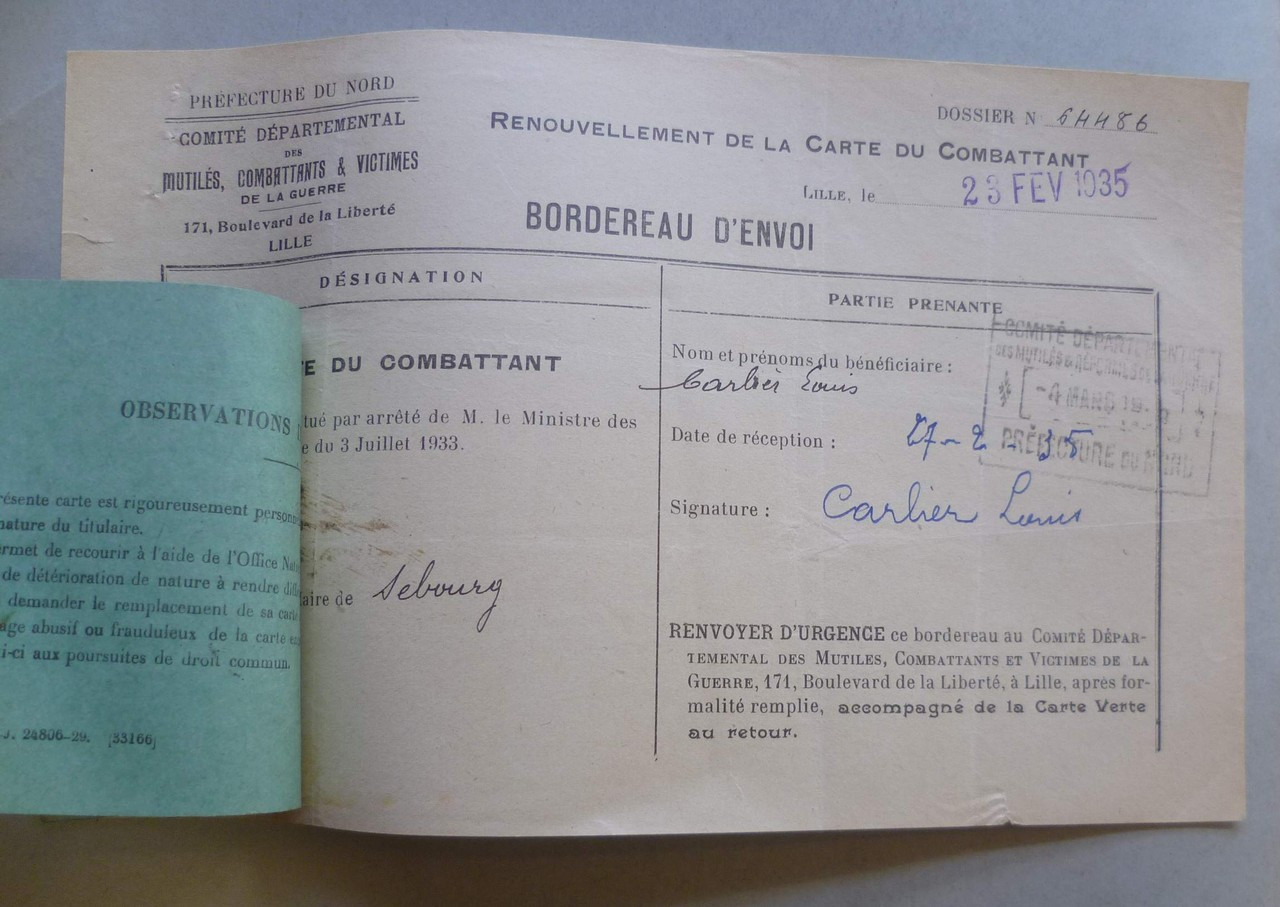 PRÉFECTURE DU NORD
COMITÉ DÉPARTEMENTAL
DES
MUTILÉS, COMBATTANTS & VICTIMES
DE LA GUERRE
171, Boulevard de la Liberté
LILLE
DOSSIER N 64486
RENOUVELLEMENT DE LA CARTE DU COMBATTANT
LILLE, le 23 FEV 1935
BORDEREAU D'ENVOI
DÉSIGNATION
E DU COMBATTANT
tué par arrêté de M. le Ministre des
e du 3 Juillet 1933.
aire de Sebourg
PARTIE PRENANTE
Nom et prénoms du bénéficiaire :
Carlier Louis
Date de réception : 27-2-35
Signature : Carlier Louis
COMITÉ DÉPARTEMENTAL
DES MUTILÉS & RÉFORMÉS DE LA GUERRE
-4 MARS 19
PRÉFECTURE DU NORD
RENVOYER D'URGENCE ce bordereau au COMITÉ DÉPAR-
TEMENTAL DES MUTILES, COMBATTANTS ET VICTIMES DE LA
GUERRE, 171, Boulevard de la Liberté, à Lille, après for-
malité remplie, accompagné de la Carte Verte
au retour.
OBSERVATIONS
résente carte est rigoureusement personn
nature du titulaire.
ermet de recourir à l'aide de l'Office Nat
de détérioration de nature à rendre diff
demander le remplacement de sa carte
age abusif ou frauduleux de la carte
i-ci aux poursuites de droit commun.
J. 24806-29. [33166]